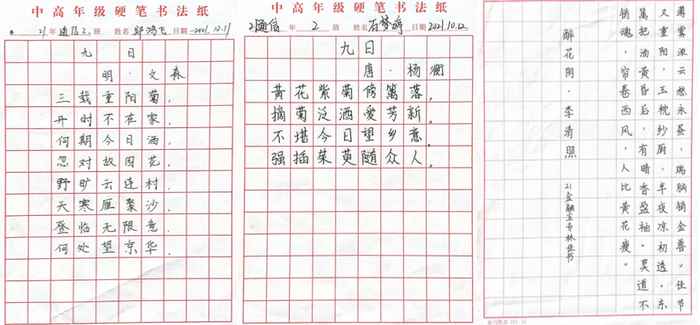 中高年级硬笔书法纸
21年通信2班 姓名 邱鸿飞 日期 2021.10.11
九日
明·文森
三载重阳菊,
开时不在家.
何期今日酒,
忽对故园花.
野旷云连村,
天寒雁聚沙.
登临无限意,
何处望京华.
中高年级硬笔书法纸
21通信 2 班 姓名 日期 2021.10.12
九日
唐·杨衡
黄花紫菊傍篱落,
摘菊泛酒爱芳新.
不堪今日望乡意,
强插茱萸随众人.
薄雾浓云愁永昼,瑞脑销金兽。佳节
又重阳,玉枕纱厨,半夜凉初透。东
篱把酒黄昏后,有暗香盈袖。莫道不
销魂,帘卷西风,人比黄花瘦。
醉花阴·李清照
21金融五专林佳书